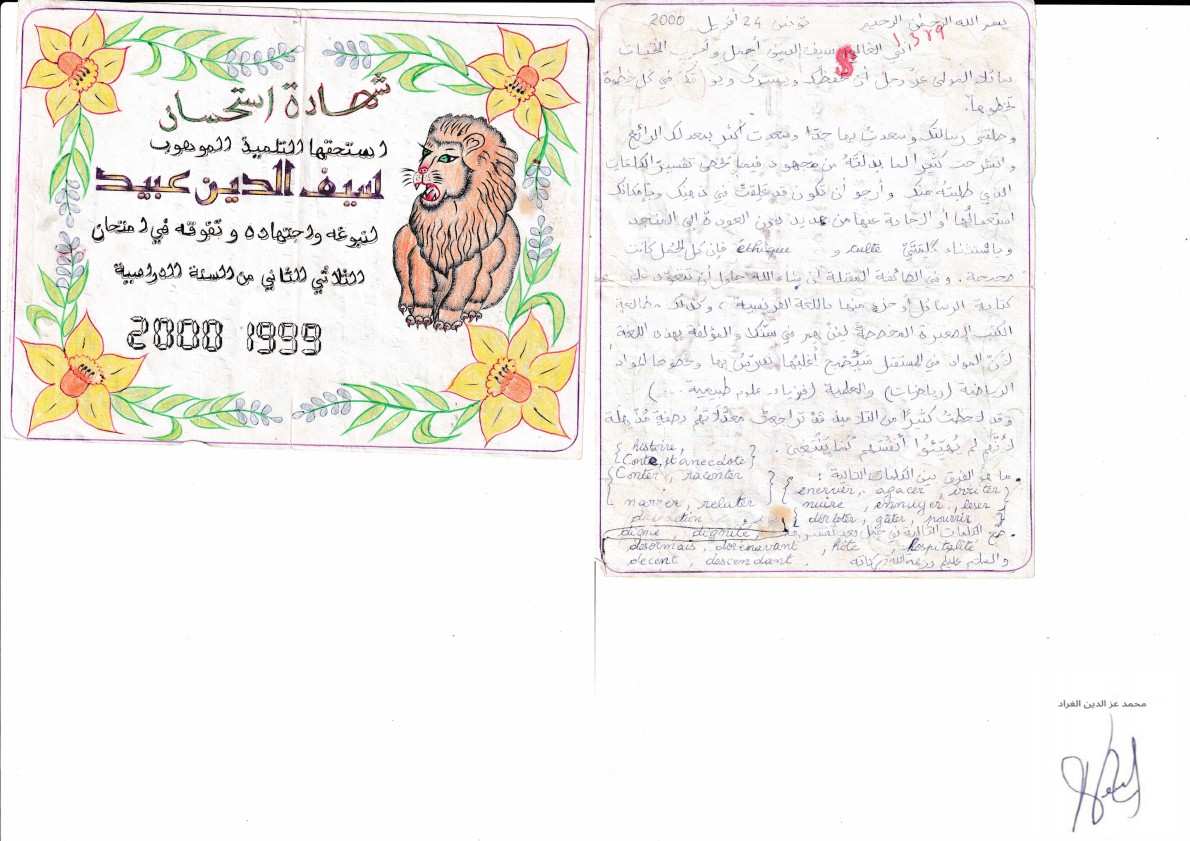 شهادة استحسان
استحقها التلميذ الموهوب
سيف الدين عبيد
لنبوغه واجتهاده وتفوقه في امتحان
الثلاثي الثاني من السنة الدراسية
2000 1999
بسم الله الرحمن الرحيم تونس 24 أفريل 2000
1389
سيف الدين أجمل وأطيب التحيات
المولى عز وجل أن يحفظك في كل خطوة
تخطوها.
وصلتني رسالتك وسعدت بها جدا وسعدت أكثر بعملك الرائع
وانشرحت كثيرا لما بذلته من مجهود فيما يخص تفسير الكلمات
الذي طلبته منك وأرجو أن تكون قد علقت في ذهنك وبإمكانك
استعمالها أو الإجابة عنها من جديد بدون العودة إلى المنجد
وباستثناء كلمتي culte و éthique فإن كل الجمل كانت
صحيحة. وفي الصائفة المقبلة إن شاء الله حاول أن تتعود على
كتابة الرسائل أو جزء منها باللغة الفرنسية، وكذلك مطالعة
الكتب الصغيرة المخصصة لمن هم في سنك والمؤلفة بهذه اللغة
لأن المواد في المستقبل سيصبح أغلبها يدرس بها وخصوصا المواد
الرياضية (رياضيات) والعلمية (فيزياء، علوم طبيعية ...)
وقد لاحظت كثيرا من التلاميذ قد تراجعت معدلاتهم دفعة مذهلة
لأنهم لم يهيئوا أنفسهم كما ينبغي. { histoire,
Conte, et anecdote }
. ما هو الفرق بين الكلمات التالية : { Conter, raconter
narrer, relater } { énerver, agacer, irriter }
nuire, ennuyer, léser
{ gâter, pourrir }
. ضع الكلمات التالية في جمل بعد تفسيرها digne, dignité,
désormais, dorénavant, hôte, hospitalité
décent, descendant. والسلام عليكم ورحمة الله وبركاته
محمد عز الدين الغراد